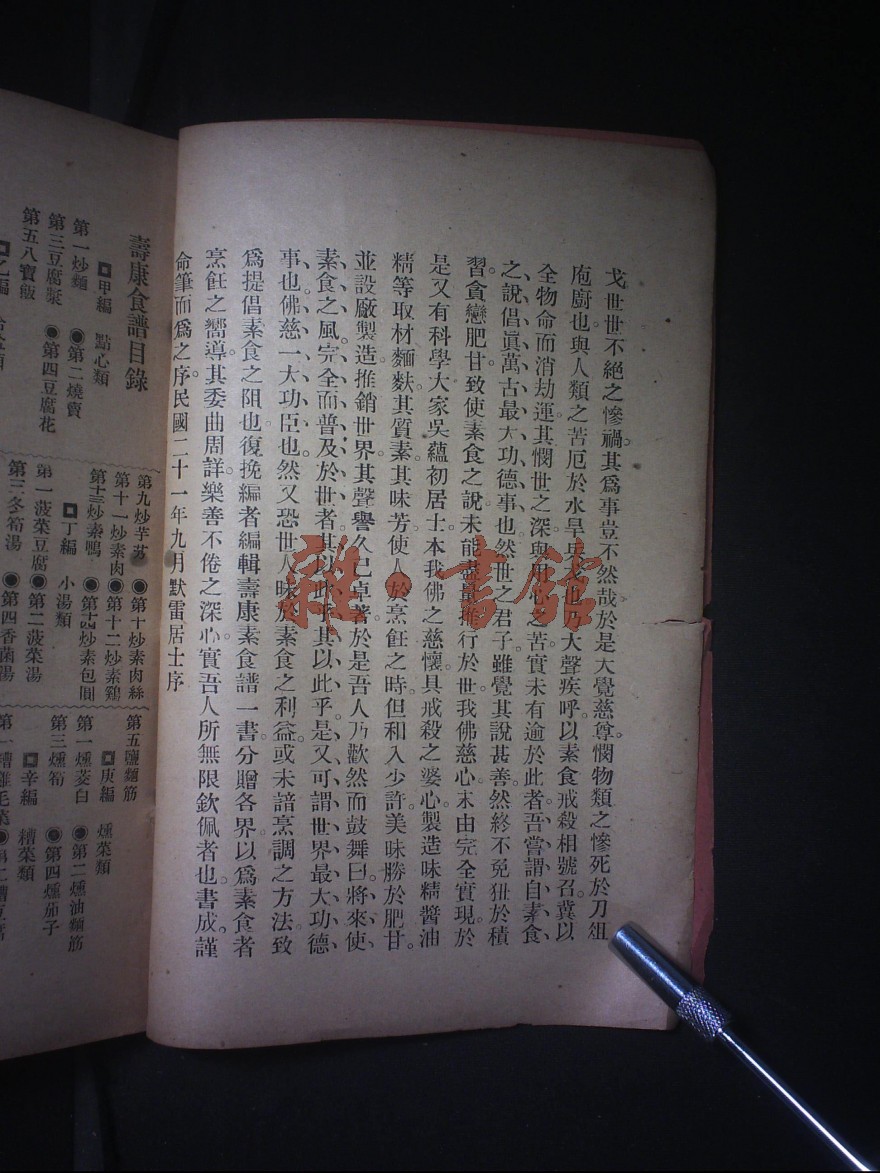 戈世世不絕之慘禍。其爲事豈不然哉。於是大覺慈尊。憫物類之慘死於刀俎
庖廚也。與人類之苦厄於水旱兵火也。乃大聲疾呼。以素食戒殺相號召。冀以
全物命而消劫運。其憫世之深。與用心之苦。實未有逾於此者。吾嘗謂自素食
之說倡。眞萬古最大功德事也。然世之君子。雖覺其說甚善。然終不免狃於積
習。貪戀肥甘。致使素食之說。未能盡量推行於世。我佛慈心。末由完全實現。於
是又有科學大家吳蘊初居士。本我佛之慈懷。具戒殺之婆心。製造味精醬油
精等。取材麵麩。其質素。其味芳。使人於烹飪之時。但和入少許。美味勝於肥甘。
並設廠製造。推銷世界。其聲譽久已卓著。於是吾人乃歡然而鼓舞曰。將來使
素食之風。完全而普及於世者。其以此乎。其以此乎。是又可謂世界最大功德
事也。佛慈一大功臣也。然又恐世人昧於素食之利益。或未諳烹調之方法。致
爲提倡素食之阻也。復挽編者編輯壽康素食譜一書。分贈各界。以爲素食者
烹飪之嚮導。其委曲周詳。樂善不倦之深心。實吾人所無限欽佩者也。書成。謹
命筆而爲之序。民國二十一年九月默雷居士序
壽康食譜目錄
甲編 點心類
第一炒麵 ●第二燒賣
第三豆腐漿 ●第四豆腐花
第五八寶飯
乙編
第九炒芋艿 ●第十炒素肉絲
第十一炒素肉 ●第十二炒素鷄
第十三炒素鴨 ●第十四炒素包圓
丁編 小湯類
第一菠菜豆腐 ●第二菠菜湯
第三冬筍湯 ●第四香菌湯
第五鹽麵筋
庚編 燻菜類
第一燻茭白 ●第二燻油麵筋
第三燻筍 ●第四燻茄子
辛編 糟菜類
第一糟雞毛菜
雜·書館